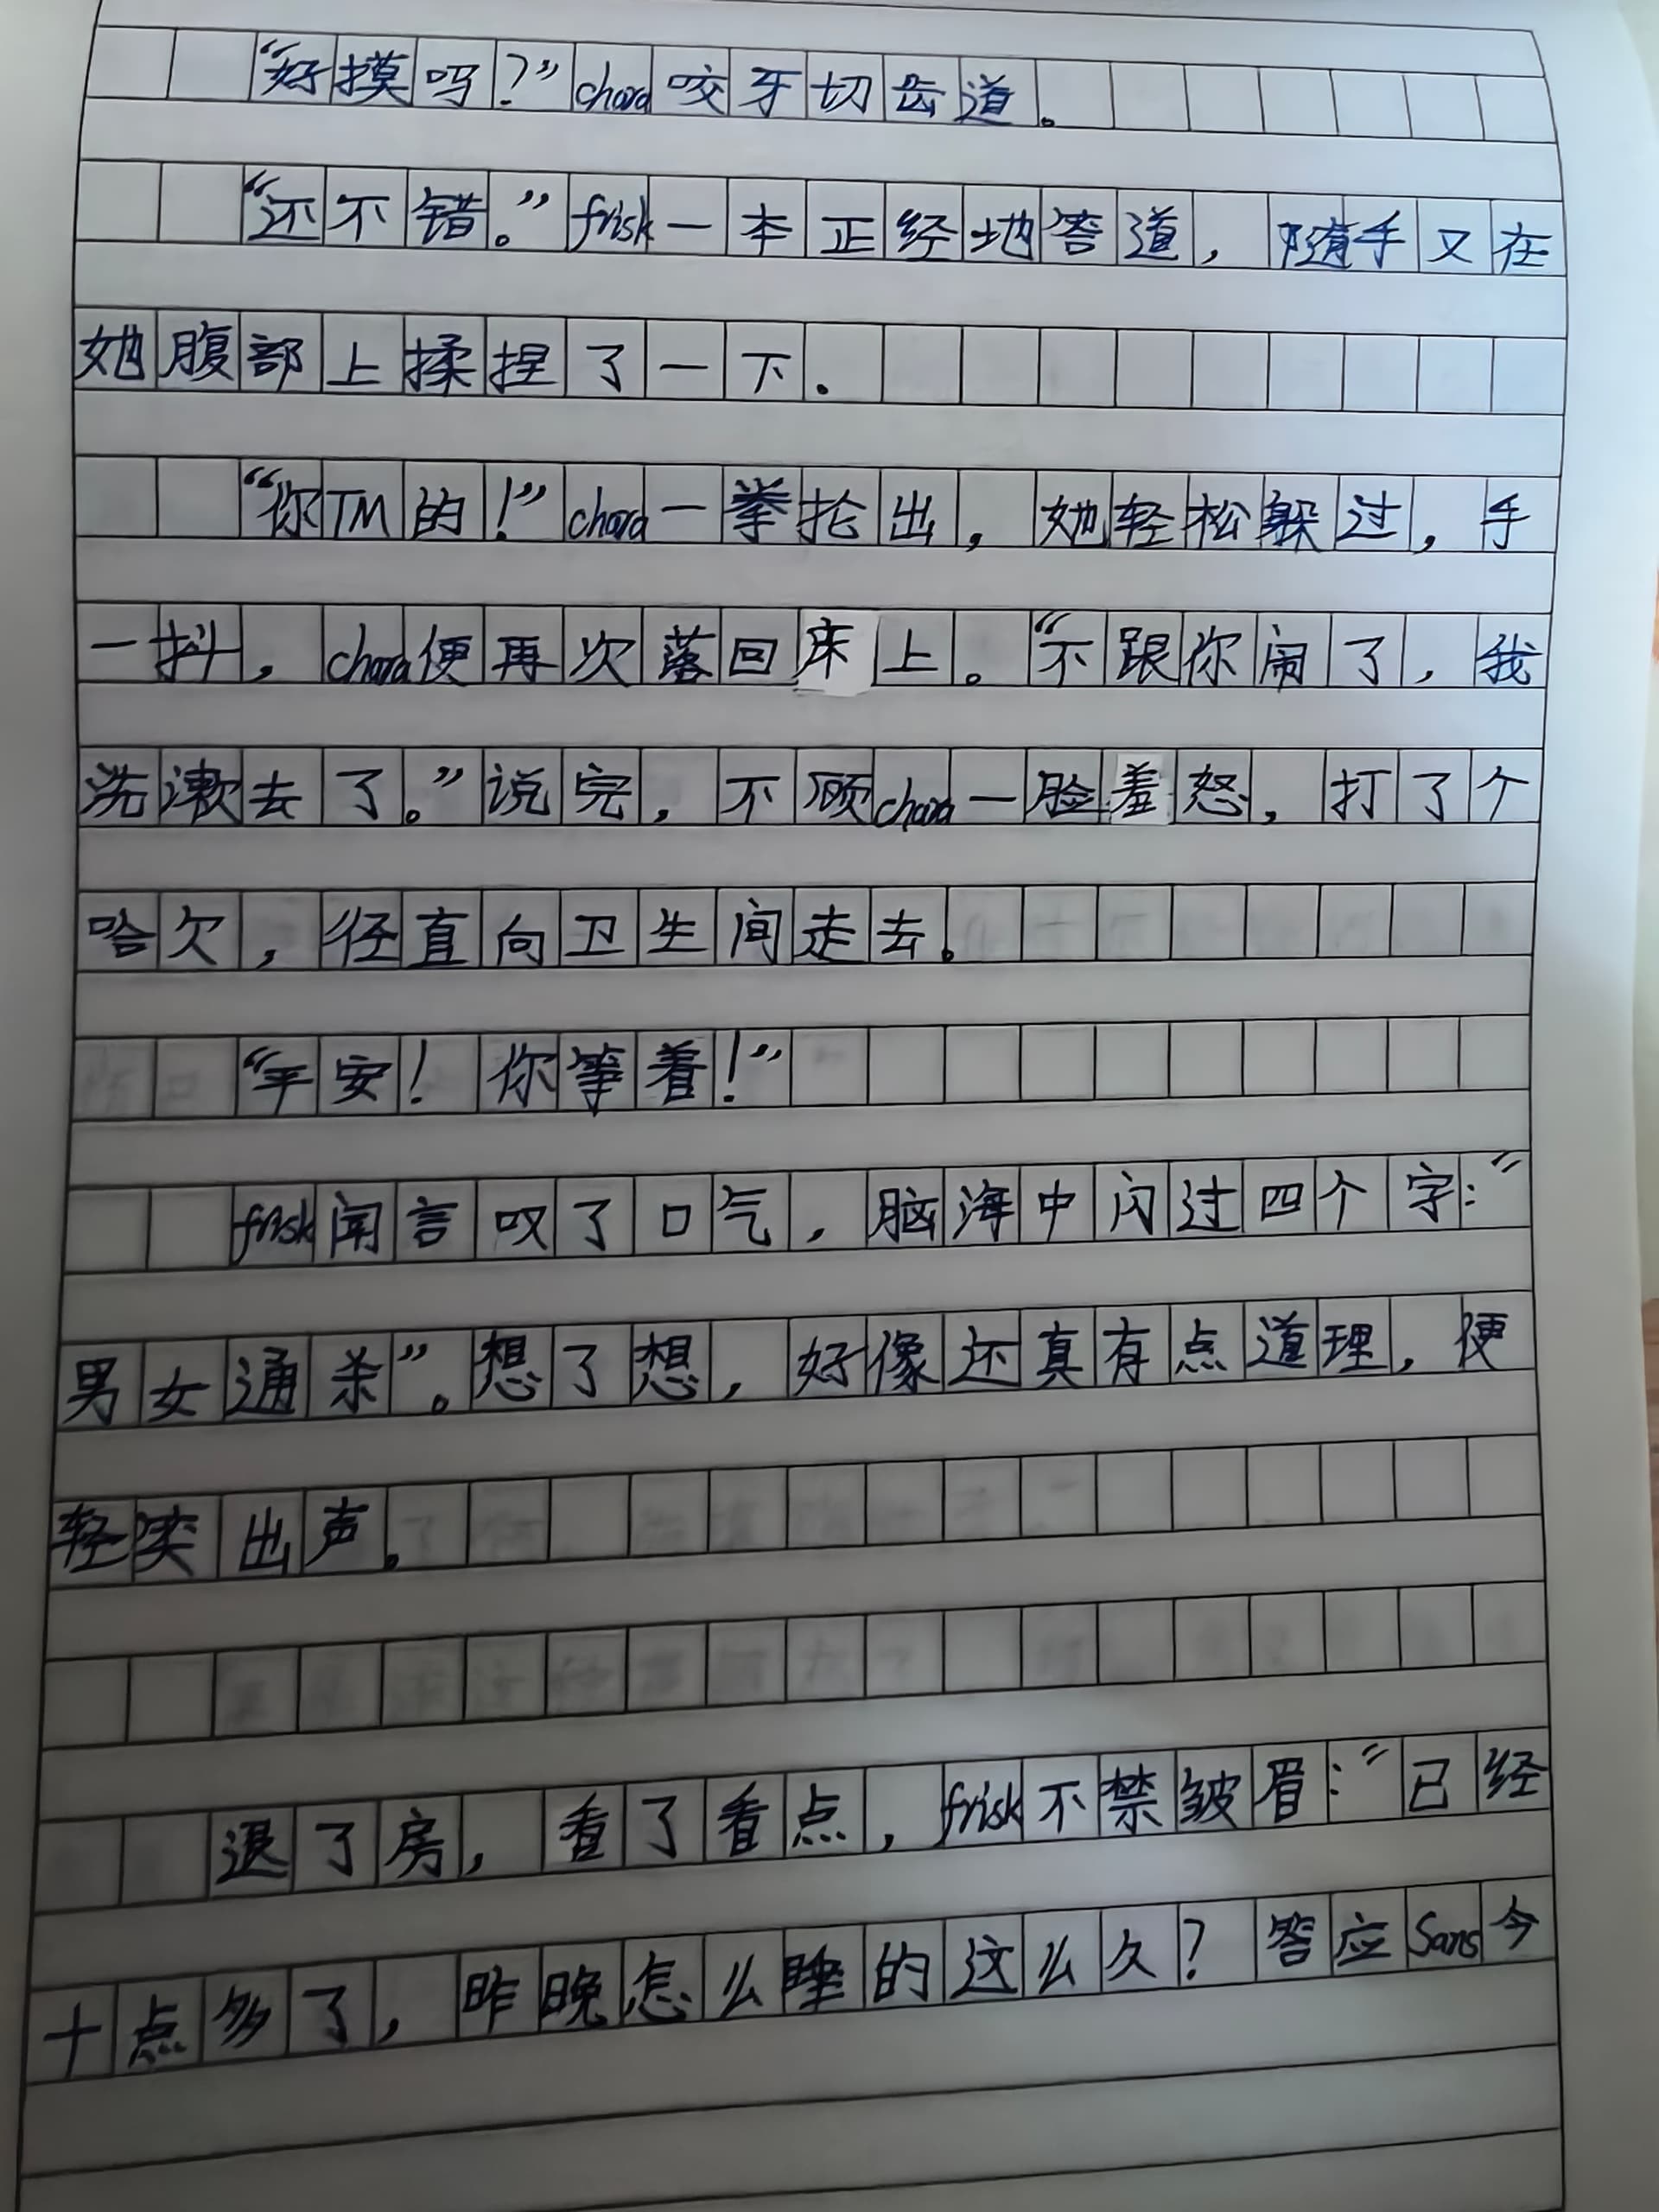 “好摸吗?”chara咬牙切齿道。
“还不错。”frisk一本正经地答道，随手又在
她腹部上揉捏了一下.
“你TM的!”chara一拳抡出，她轻松躲过，手
一抖，chara便再次落回床上。“不跟你闹了，我
洗漱去了。”说完，不顾chara一脸羞怒，打了个
哈欠，径直向卫生间走去。
“平安！你等着!”
frisk闻言叹了口气，脑海中闪过四个字:“
男女通杀”。想了想，好像还真有点道理，便
轻笑出声。
退了房，看了看点，frisk不禁皱眉:“已经
十点多了，昨晚怎么睡的这么久?答应Sans今